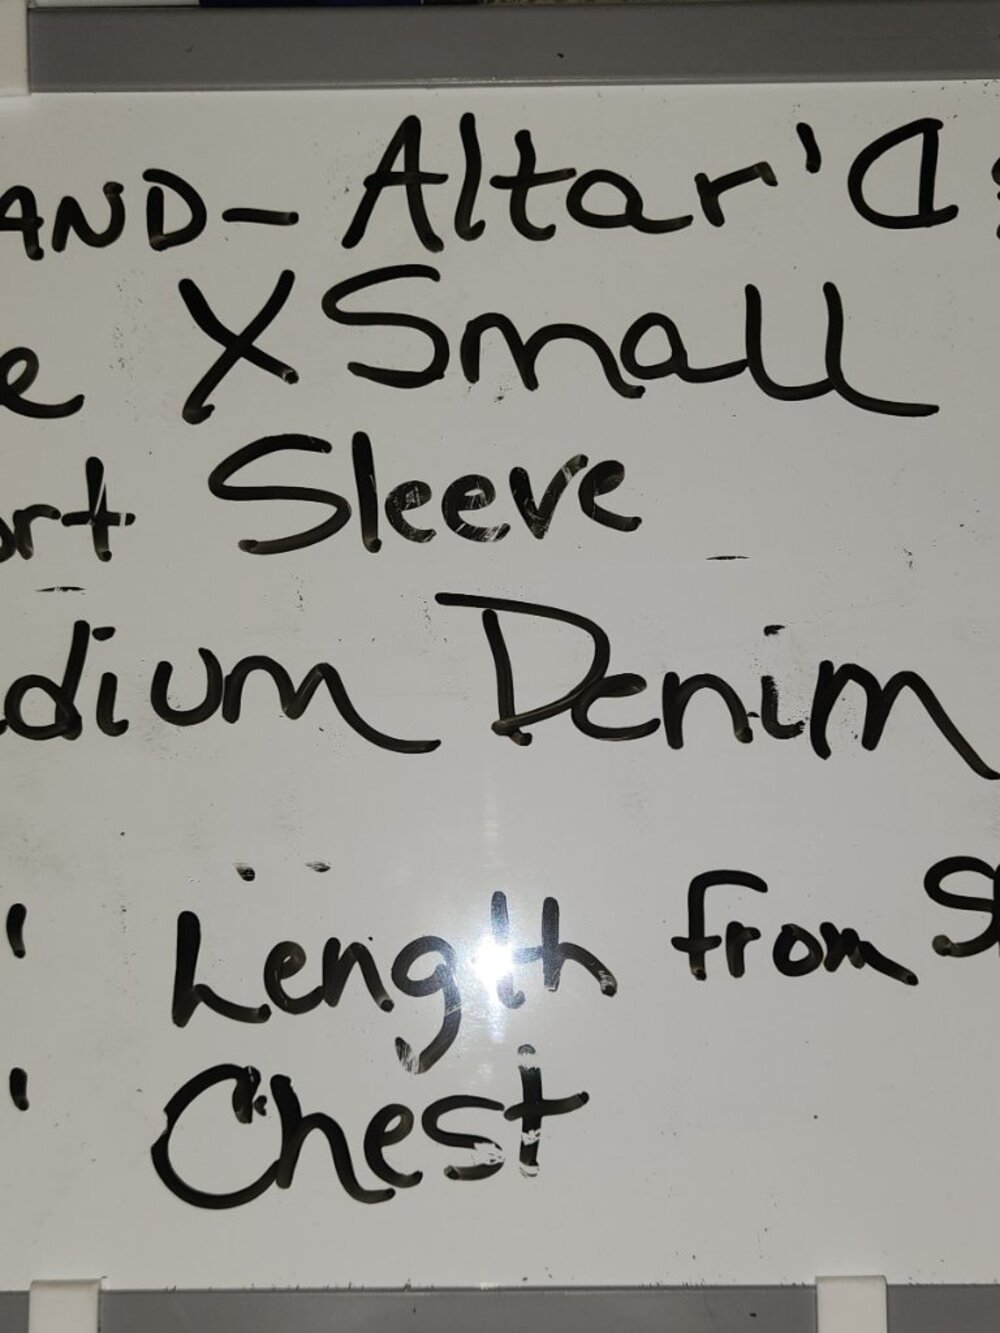 AND- Altar'd
e XSmall
ort Sleeve
dium Denim
' Length from S
' Chest